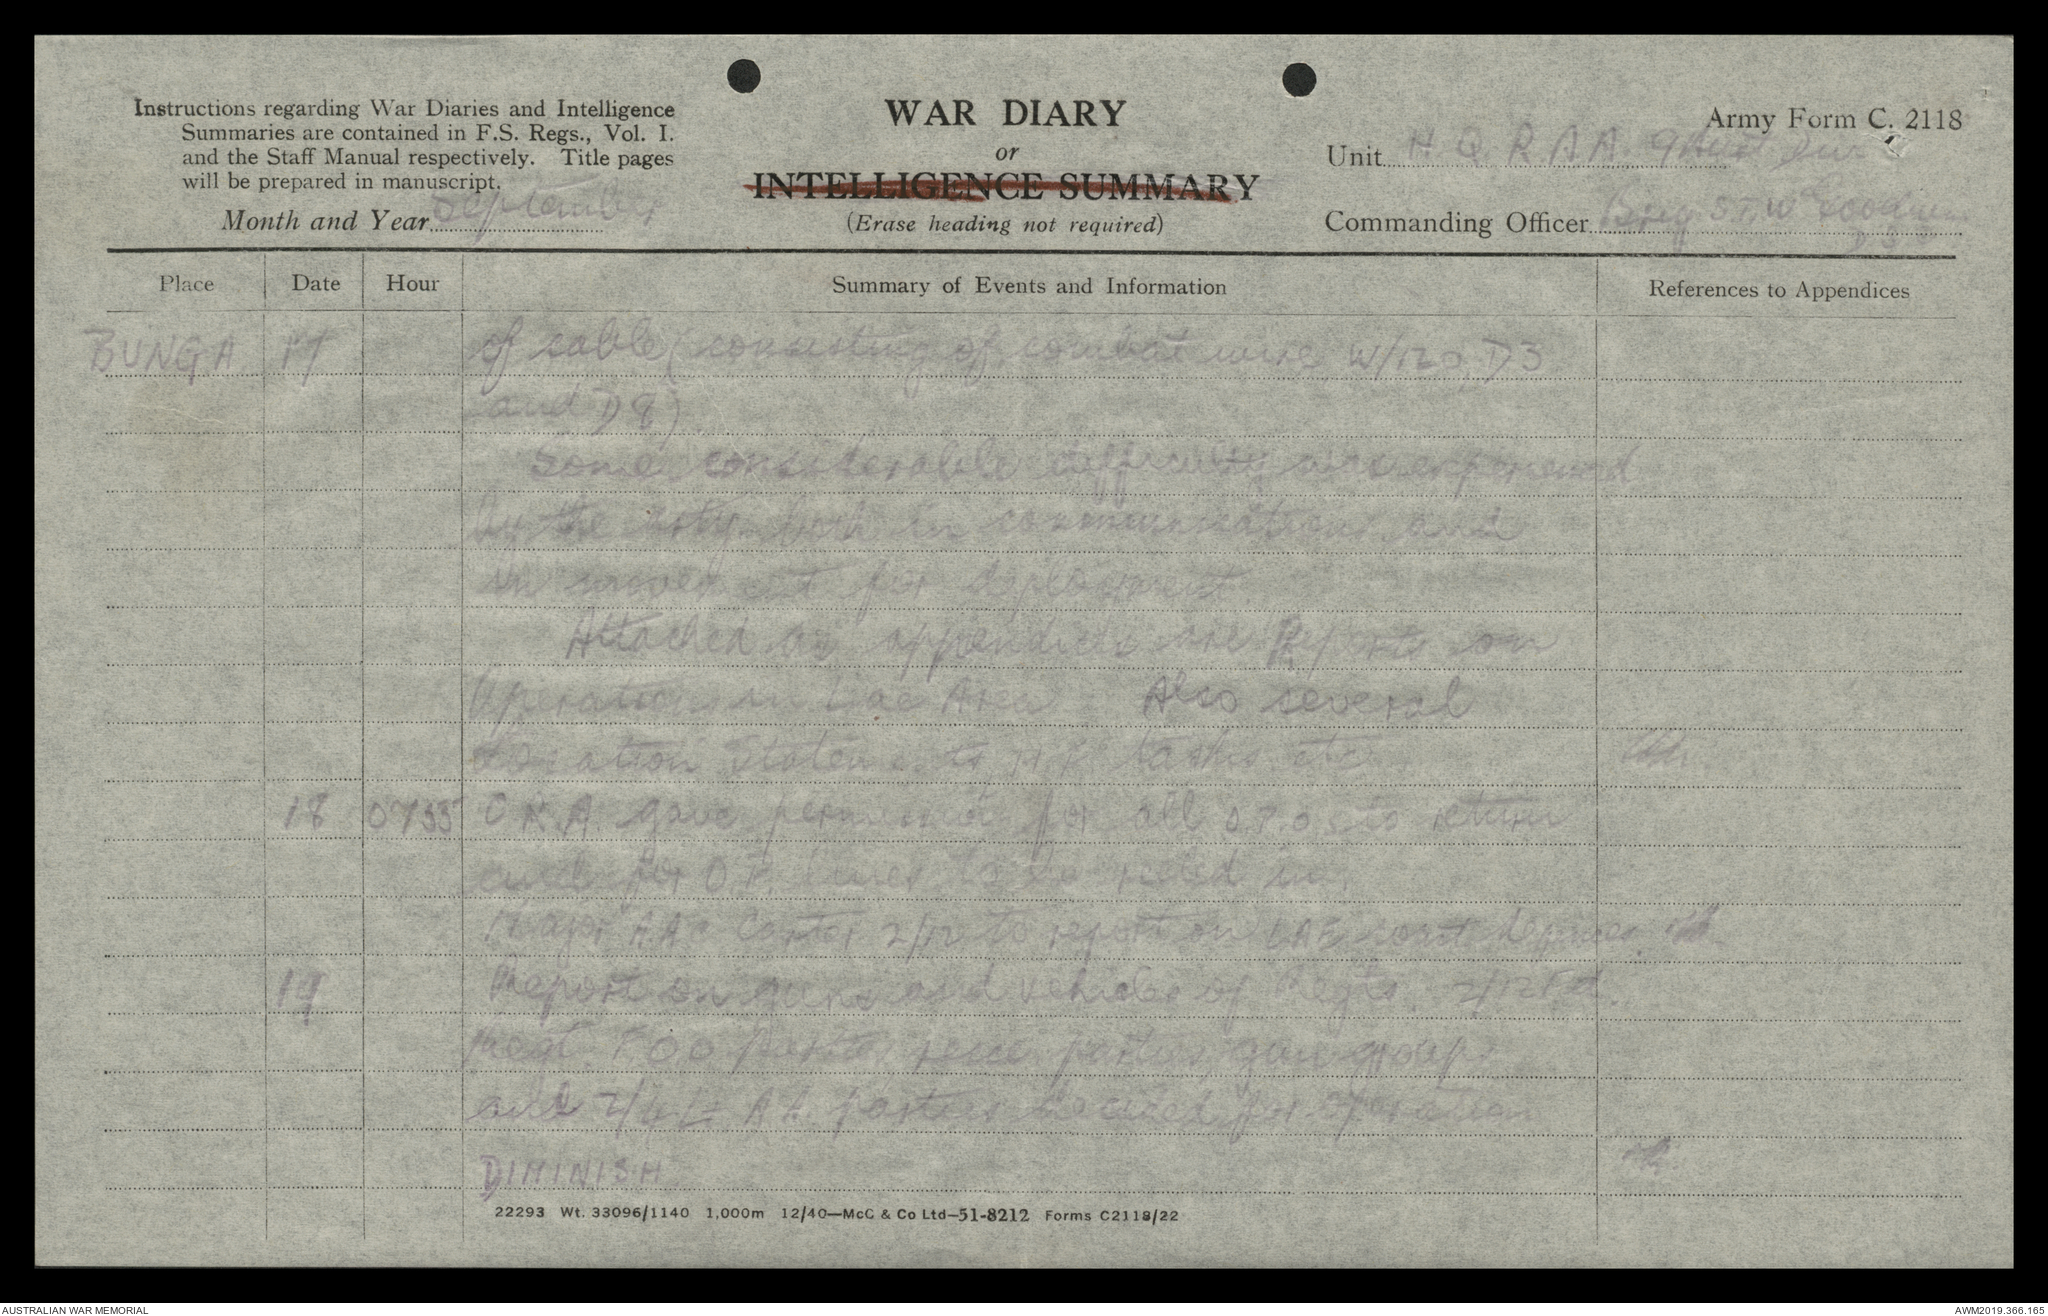 Instructions regarding War Diaries and Intelligence
Summaries are contained in F.S. Regs., Vol. I.
and the Staff Manual respectively. Title pages
will be prepared in manuscript.
Month and Year September
WAR DIARY
or
INTELLIGENCE SUMMARY
(Erase heading not required)
Army Form C. 2118
Unit H.Q. R.A.A. 9 Aust Div
Commanding Officer Brig S.T.W. Goodwin
DSO
Place Date Hour Summary of Events and Information References to Appendices
BUNGA 17 of cable (consisting of combat wire W/120, D3
and D8)
Some considerable difficulty was experienced
by the arty both in communications and
in movement for deployment.
Attached as appendices are Reports on
Operations in Lae Area Also several
location statements, H.F. tasks etc.
18 0755 C.R.A. gave permission for all O.P.Os to return
and for O.P. lines to be reeled in.
Major A.A. 2/12 to report on LAE coast defences.
19 Report on guns and vehicles of Regts. 2/12 Fd.
Regt. F.O.O parties, recce parties, gun group
and 2/4 Lt A.A. parties for operation
DIMINISH
22293 Wt. 33096/1140 1,000m 12/40—McC & Co Ltd—51-8212 Forms C2118/22
AUSTRALIAN WAR MEMORIAL
AWM2019.366.165